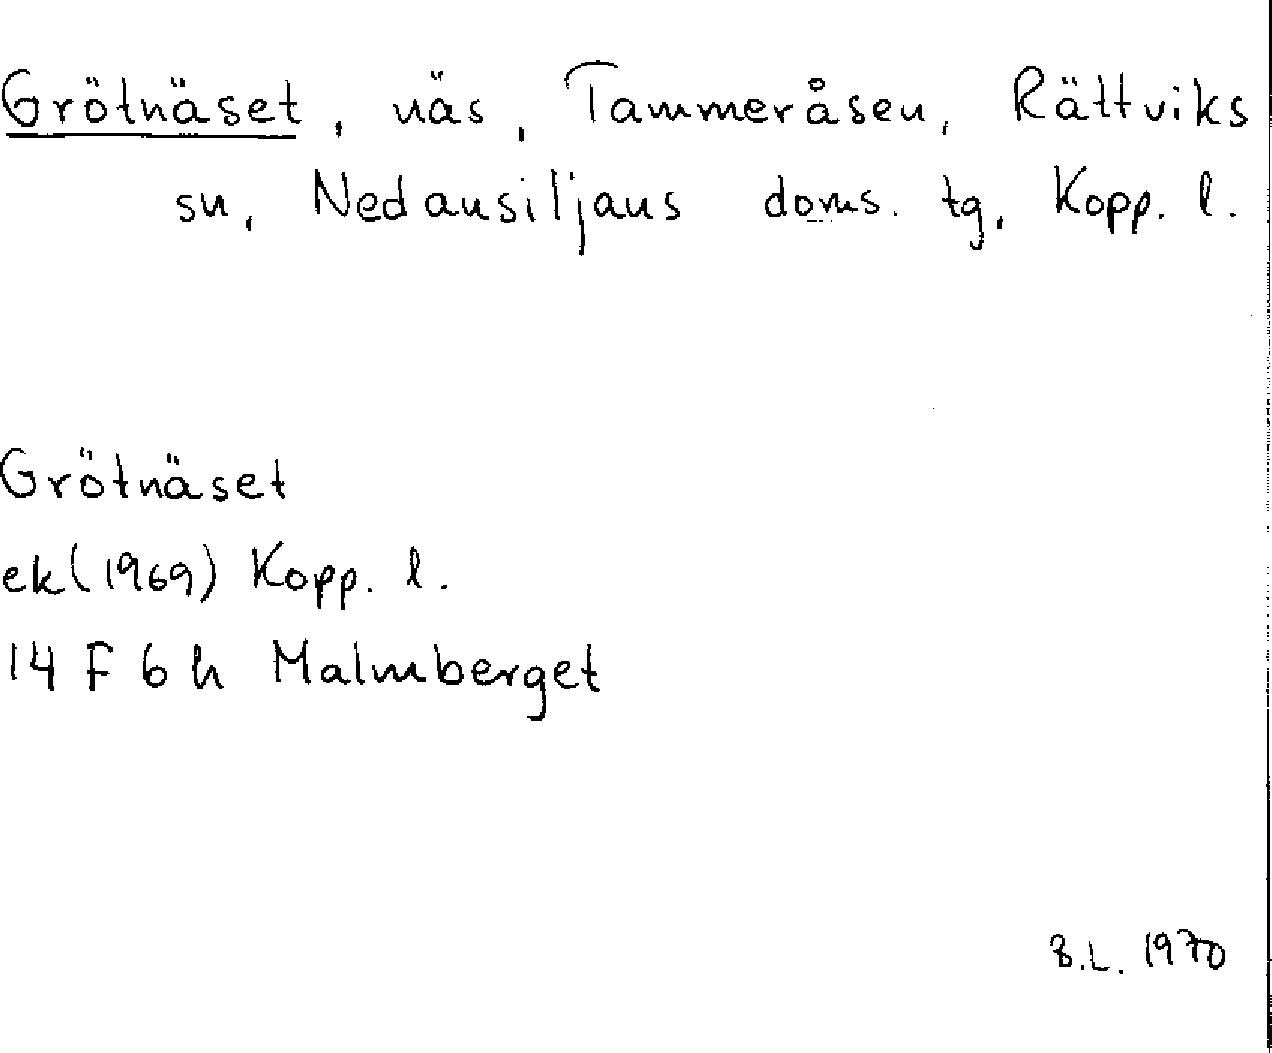 Grötnäset, näs, Tammeråsen, Rättviks
sn, Nedansiljans doms. tg, Kopp. l.
Grötnäset
ek (1969) Kopp. l.
14 F 6 h Malmberget
B.L. 1970